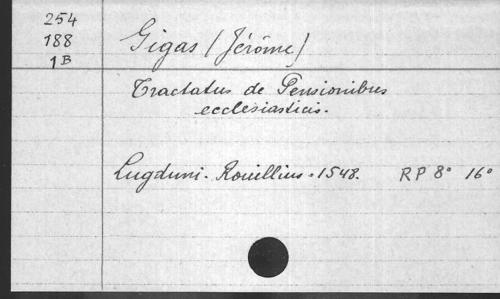 254
188
1B
Gigas (Jérôme)
Tractatus de Pensionibus
ecclesiasticis.
Lugduni. Rouillius. 1548. RP 8° 16°